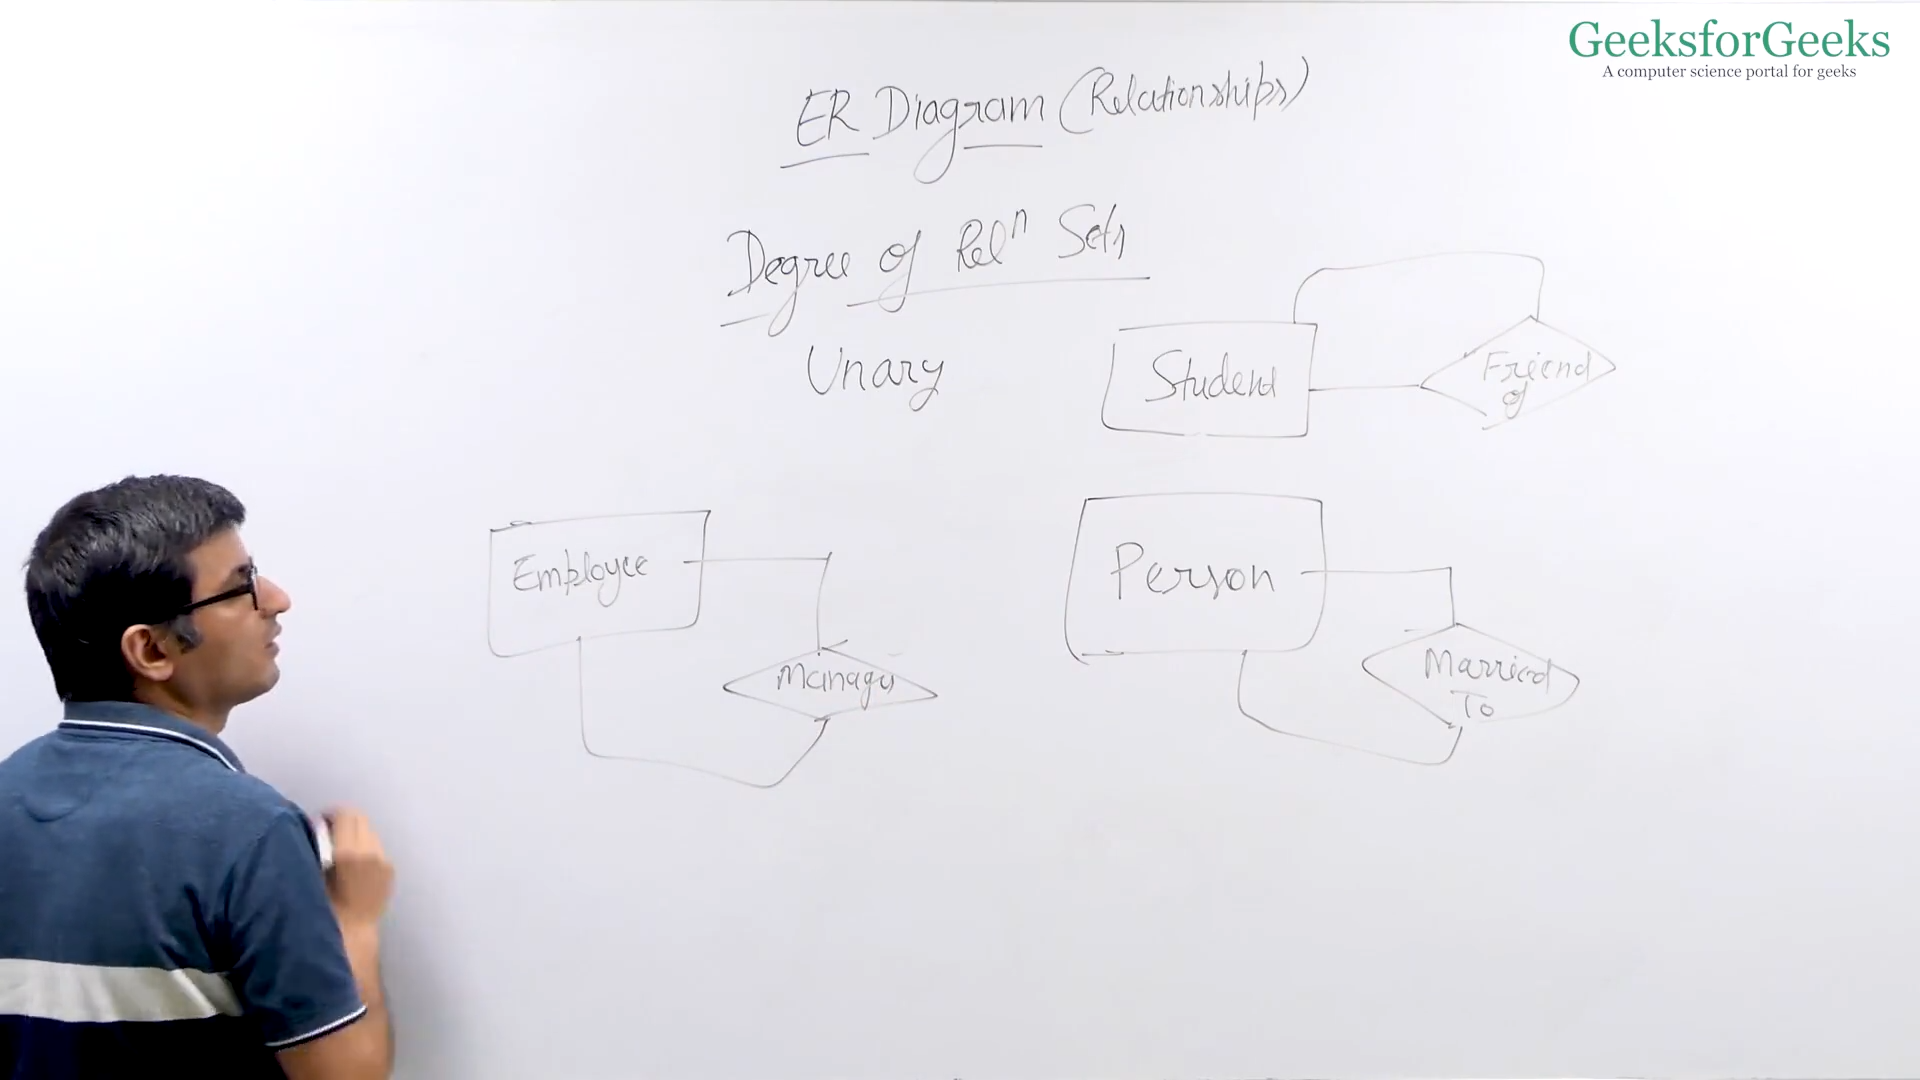 GeeksforGeeks
A computer science portal for geeks
ER Diagram (Relationships)
Degree of Relⁿ Sets
Unary
Student
Friend
of
Employee
Manages
Person
Married
To